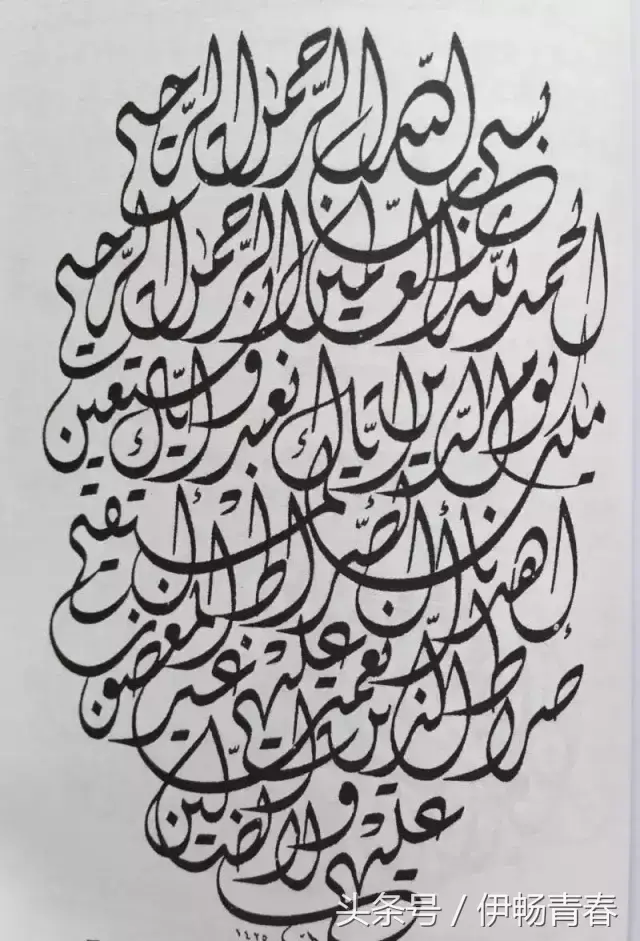 بسم الله الرحمن الرحيم
الحمد لله رب العالمين الرحمن الرحيم
ملك يوم الدين إياك نعبد وإياك نستعين
اهدنا الصراط المستقيم
صراط الذين أنعمت عليهم غير المغضوب
عليهم ولا الضالين
١٤٢٥
头条号 / 伊畅青春